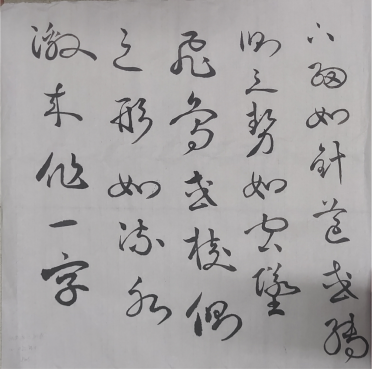 下細如針芒或轉
側之勢如空墜
飛鳥或棱側
之形如流水
激來作一字